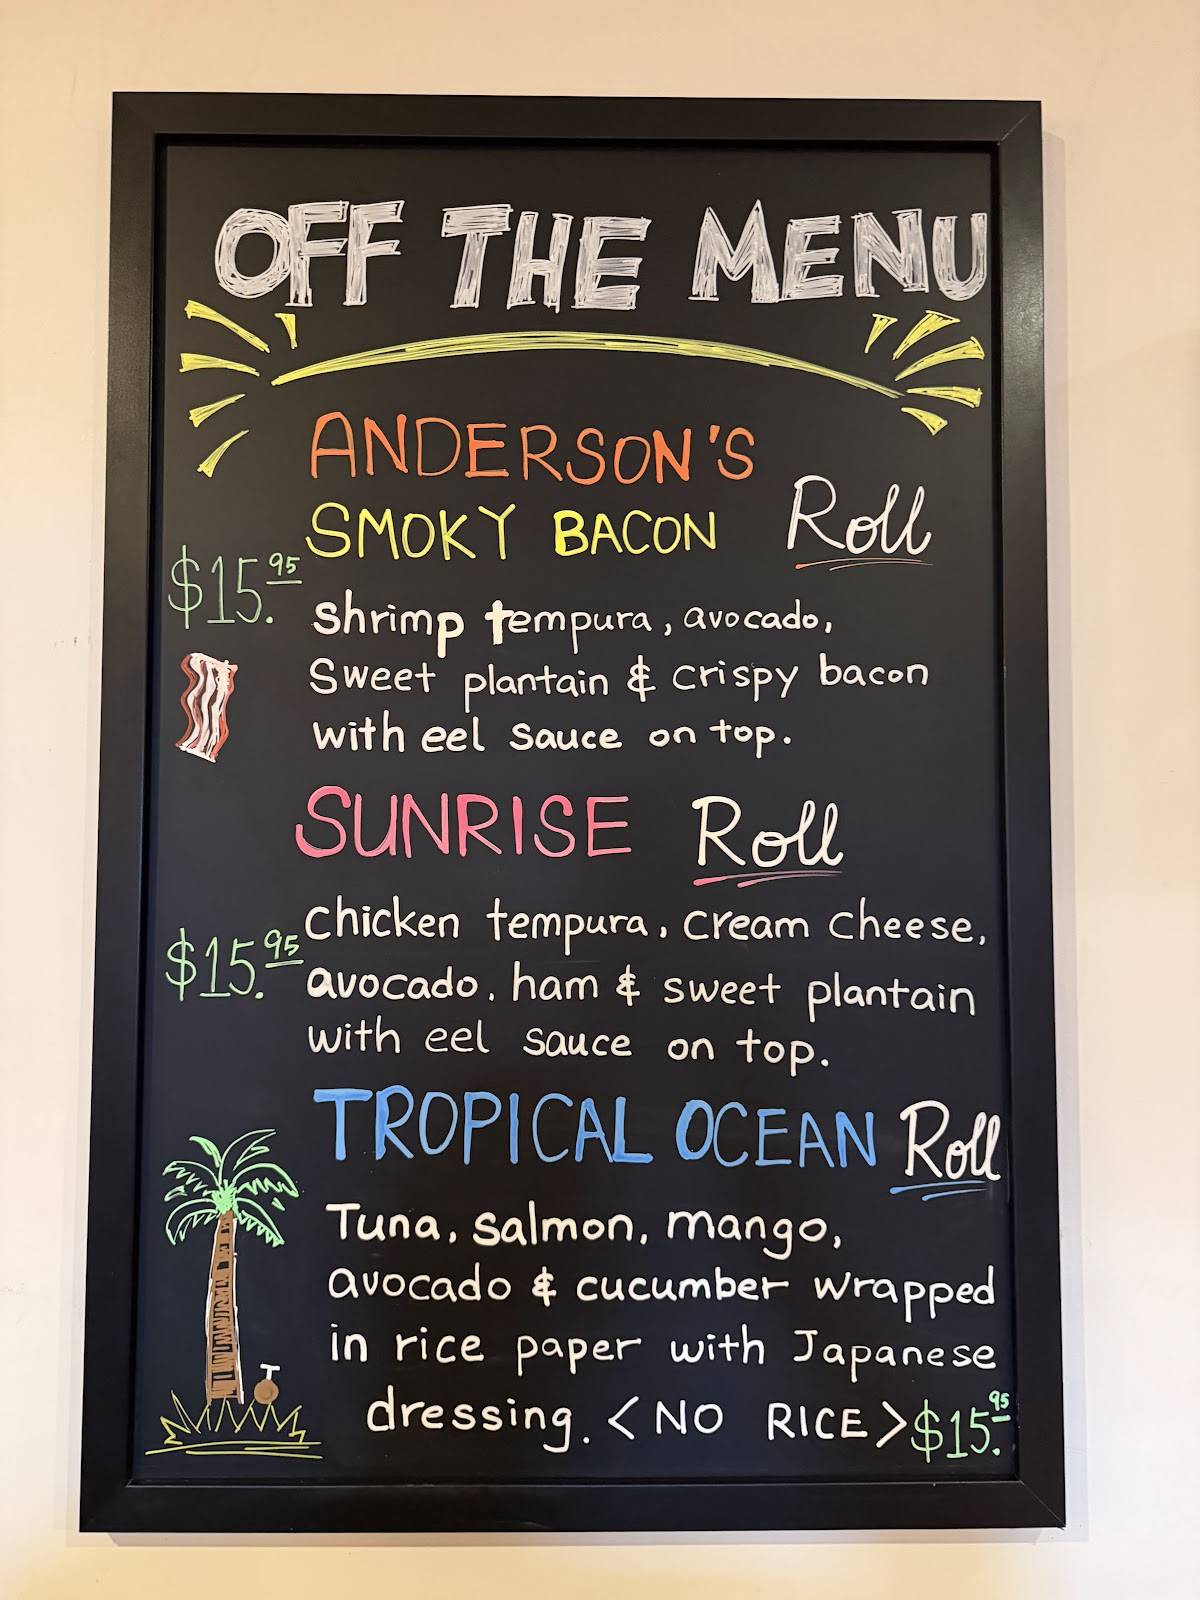 OFF THE MENU
ANDERSON'S
SMOKY BACON Roll
$15.95
shrimp tempura, avocado,
Sweet plantain & crispy bacon
with eel sauce on top.
SUNRISE Roll
$15.95
Chicken tempura, cream cheese,
avocado, ham & sweet plantain
with eel sauce on top.
TROPICAL OCEAN Roll
Tuna, salmon, mango,
avocado & cucumber wrapped
in rice paper with Japanese
dressing. <NO RICE> $15.95